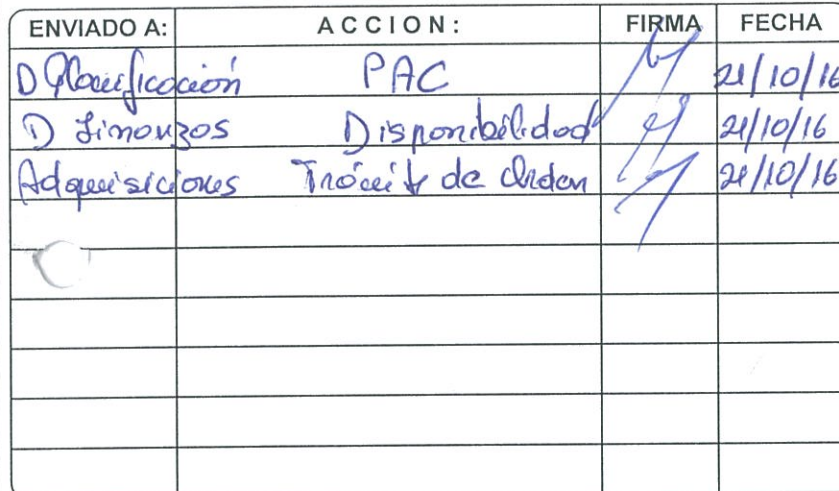 ENVIADO A: ACCION: FIRMA FECHA
D Planificación PAC 21/10/16
D Finanzas Disponibilidad 21/10/16
Adquisiciones Trámite de orden 21/10/16